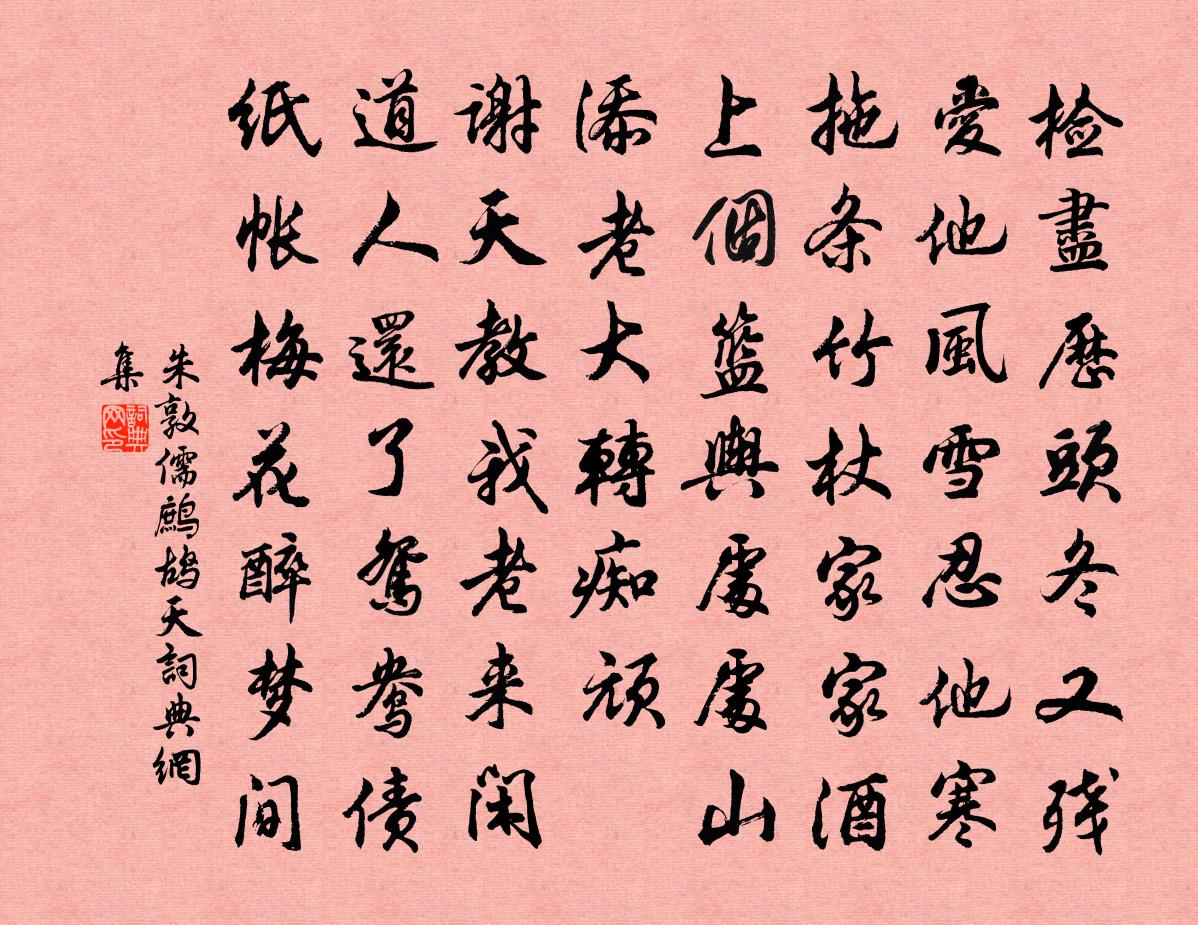 检盡歷頭冬又残
愛他風雪忍他寒
拖条竹杖家家酒
上個籃輿處處山
添老大轉痴顽
谢天教我老来闲
道人還了鸳鴦债
纸帐梅花醉梦间
朱敦儒鷓鸪天詞典網
集
詞典网印